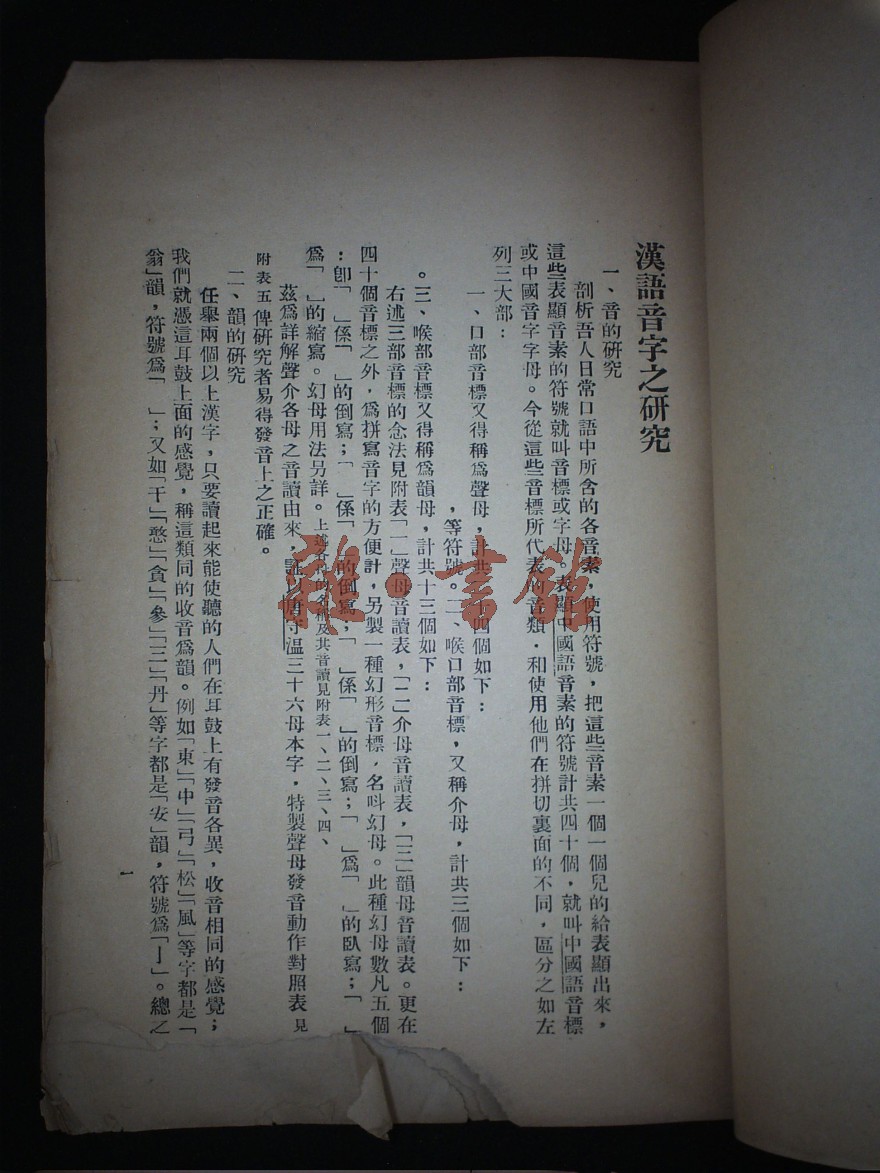 漢語音字之研究
一、音的研究
剖析吾人日常口語中所含的各音素，使用符號，把這些音素一個一個兒的給表顯出來，
這些表顯音素的符號就叫音標或字母。表顯中國語音素的符號計共四十個，就叫中國語音標
或中國音字字母。今從這些音標所代表的音類．和使用他們在拼切裏面的不同，區分之如左
列三大部：
一、口部音標又得稱爲聲母，計共 四個如下：
，等符號。二、喉口部音標，又稱介母，計共三個如下：
。三、喉部音標又得稱爲韻母，計共十三個如下：
右述三部音標的念法見附表「一」聲母音讀表，「二」介母音讀表，「三」韻母音讀表。更在
四十個音標之外，爲拼寫音字的方便計，另製一種幻形音標，名呌幻母。此種幻母數凡五個
：卽「　」係「　」的倒寫；「　」係「　」的倒寫；「　」係「　」的倒寫；「　」爲「　」的臥寫；「　」
爲「　」的縮寫。幻母用法另詳。上述各母的名稱及其音讀見附表一、二、三、四、
茲爲詳解聲介各母之音讀由來，証以唐守温三十六母本字．特製聲母發音動作對照表見
附表五俾研究者易得發音上之正確。
二、韻的研究
任舉兩個以上漢字，只要讀起來能使聽的人們在耳鼓上有發音各異，收音相同的感覺；
我們就憑這耳鼓上面的感覺，稱這類同的收音爲韻。例如「東」「中」「弓」「松」「風」等字都是「
翁」韻，符號爲「　」；又如「干」「憨」「貪」「參」「三」「丹」等字都是「安」韻，符號爲「亅」。總之
一
雜·書館